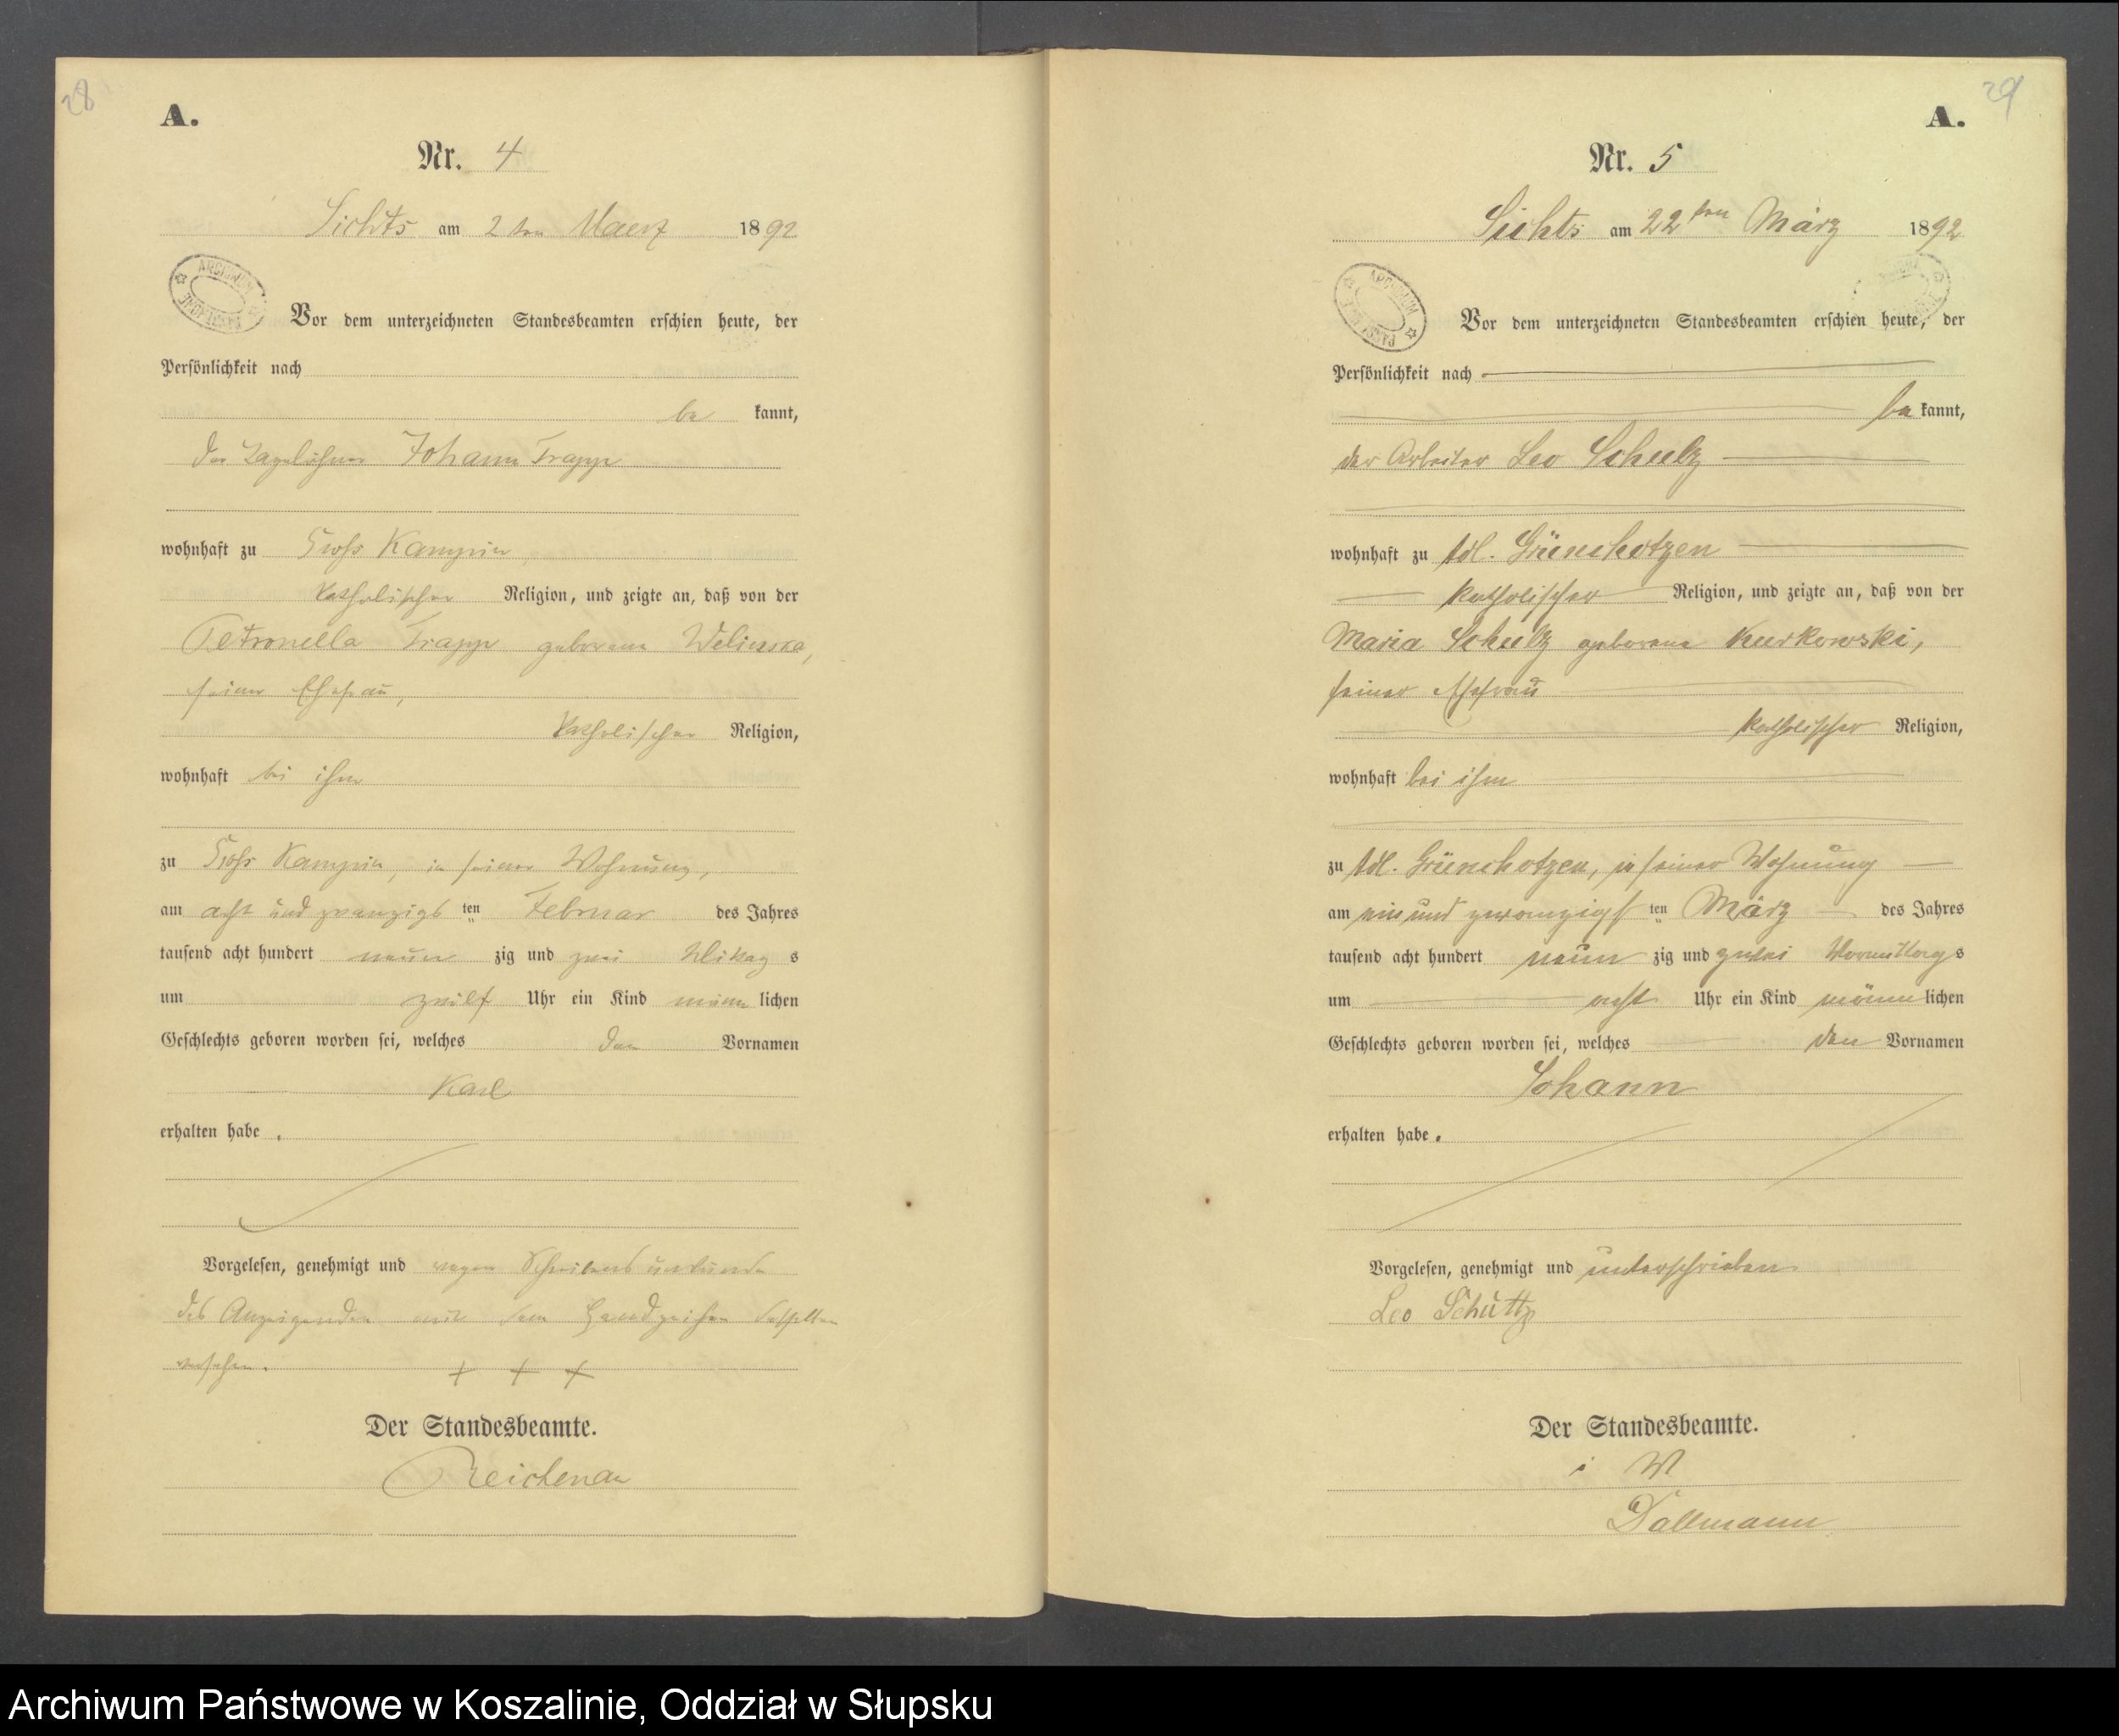 28
A.
Nr. 4
Sichts am 2ten Maerz 1892
ARCHIWUM PAŃSTWOWE
Vor dem unterzeichneten Standesbeamten erschien heute, der
Persönlichkeit nach
be kannt,
der Tagelöhner Johann Trapp
wohnhaft zu Gross Kampin,
katholischer Religion, und zeigte an, daß von der
Petronella Trapp geborene Welinska,
seiner Ehefrau,
katholischer Religion,
wohnhaft bei ihm
zu Gross Kampin, in seiner Wohnung,
am acht und zwanzigs ten Februar des Jahres
tausend acht hundert neun zig und zwei Mittag s
um zwölf Uhr ein Kind männ lichen
Geschlechts geboren worden sei, welches den Vornamen
Karl
erhalten habe.
Vorgelesen, genehmigt und wegen Schreibensunkunde
des Anzeigenden mit dem Handzeichen desselben
versehen. + + +
Der Standesbeamte.
Reichenau
29
A.
Nr. 5
Sichts am 22ten März 1892
ARCHIWUM PAŃSTWOWE
Vor dem unterzeichneten Standesbeamten erschien heute, der
Persönlichkeit nach
be kannt,
der Arbeiter Leo Schulz
wohnhaft zu Adl. Grünchotzen
katholischer Religion, und zeigte an, daß von der
Maria Schulz geborene Kurkowski,
seiner Ehefrau
katholischer Religion,
wohnhaft bei ihm
zu Adl. Grünchotzen, in seiner Wohnung
am ein und zwanzigst ten März des Jahres
tausend acht hundert neun zig und zwei Vormittag s
um acht Uhr ein Kind männ lichen
Geschlechts geboren worden sei, welches den Vornamen
Johann
erhalten habe.
Vorgelesen, genehmigt und unterschrieben
Leo Schultz
Der Standesbeamte.
i V
Dallmann
Archiwum Państwowe w Koszalinie, Oddział w Słupsku